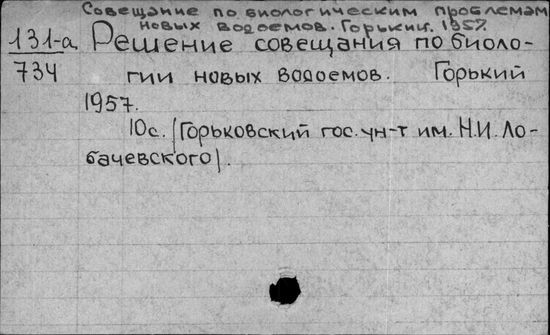 Совещание по биологическим проблемам
новых водоемов. Горький. 1957.
131-а Решение совещания по биоло-
734 гии новых водоемов. Горький
1957.
10с. (Горьковский гос. ун-т им. Н.И. Ло-
бачевского).